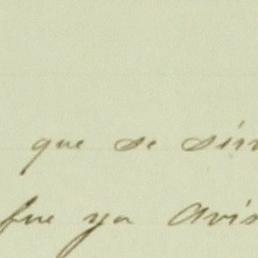 que se sir
fue ya avis